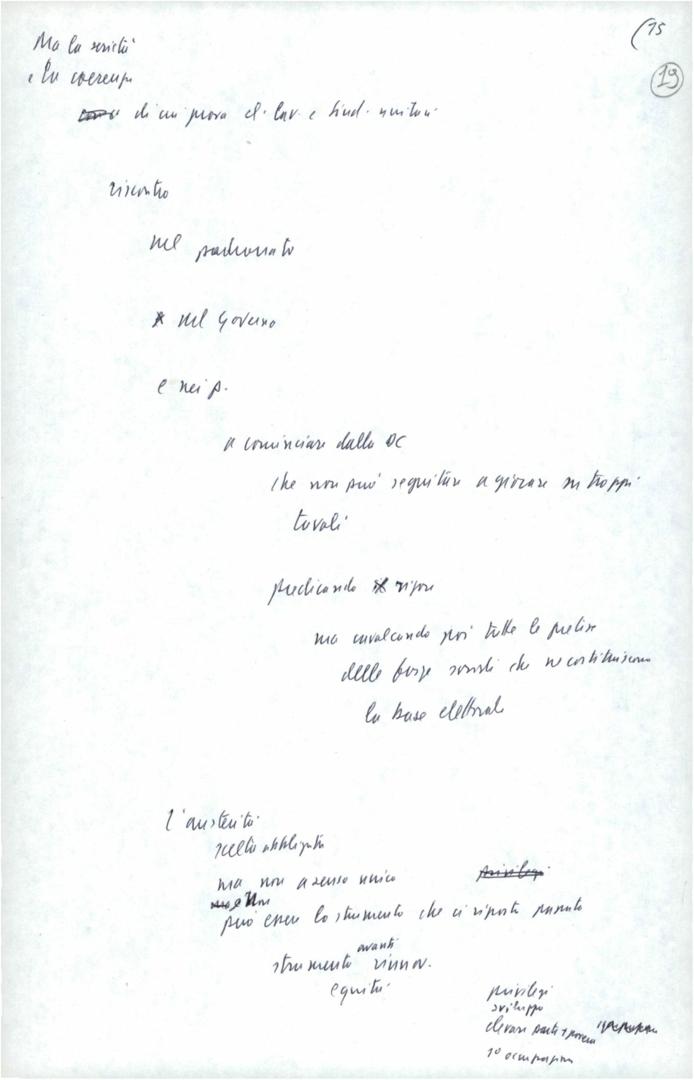 (15
19
Ma la serietà
e la coerenza
di cui prova cl. lav. e sind. unitari
riscontro
nel padronato
nel Governo
e nei p.
a cominciare dalla DC
che non può seguitare a giocare su troppi
tavoli
predicando rigore
ma cavalcando poi tutte le pretese
delle forze sociali che ne costituiscono
la base elettorale
l'austerità
scelta obbligata
ma non a senso unico
privilegi
Non
può essere lo strumento che ci riporta
avanti
strumento rinnov.
equità
privilegi
sviluppo
elevare parte + povera
1° occupazione